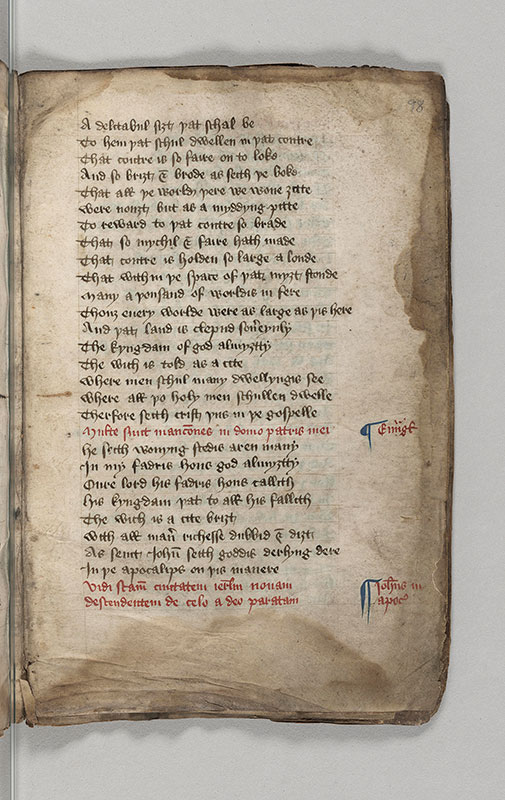 98
A delitabul siȝt þat schal be
To hem þat schul dwellen in þat contre
That contre is so faire on to loke
And so briȝt & brode as seith þe boke
That all þe world þere we wone ȝitte
Were nouȝt but as a myddyng pitte
To reward to þat contre so brade
That so mychil & faire hath made
That contre is holden so large a londe
That with in þe space of þat myȝt stonde
Many a þousand of worldis in fere
Thouȝ every worlde were as large as þis here
And þat land is clepud
The kyngdam of god almyȝtty
The wich is told as a cite
Where men schul many dwellyngis see
Where all þo holy men schullen dwelle
Therfore seith crist þus in þe gospelle
sunt mancones in domo patris mei
he seith wonyng stedis aren many
In my fadris hous god almyȝtty
Oure lord his fadris hous callith
his kyngdam þat to all his fallith
The wich is a cite briȝt
With all man̄ richesse dubbid & diȝt
As seint John̄ seith goddis derlyng dere
In þe apocalips on þis manere
Vidi scām civitatem ierl̄m novam
Joh̄nis in
descendentem de celo a deo paratam
apoc